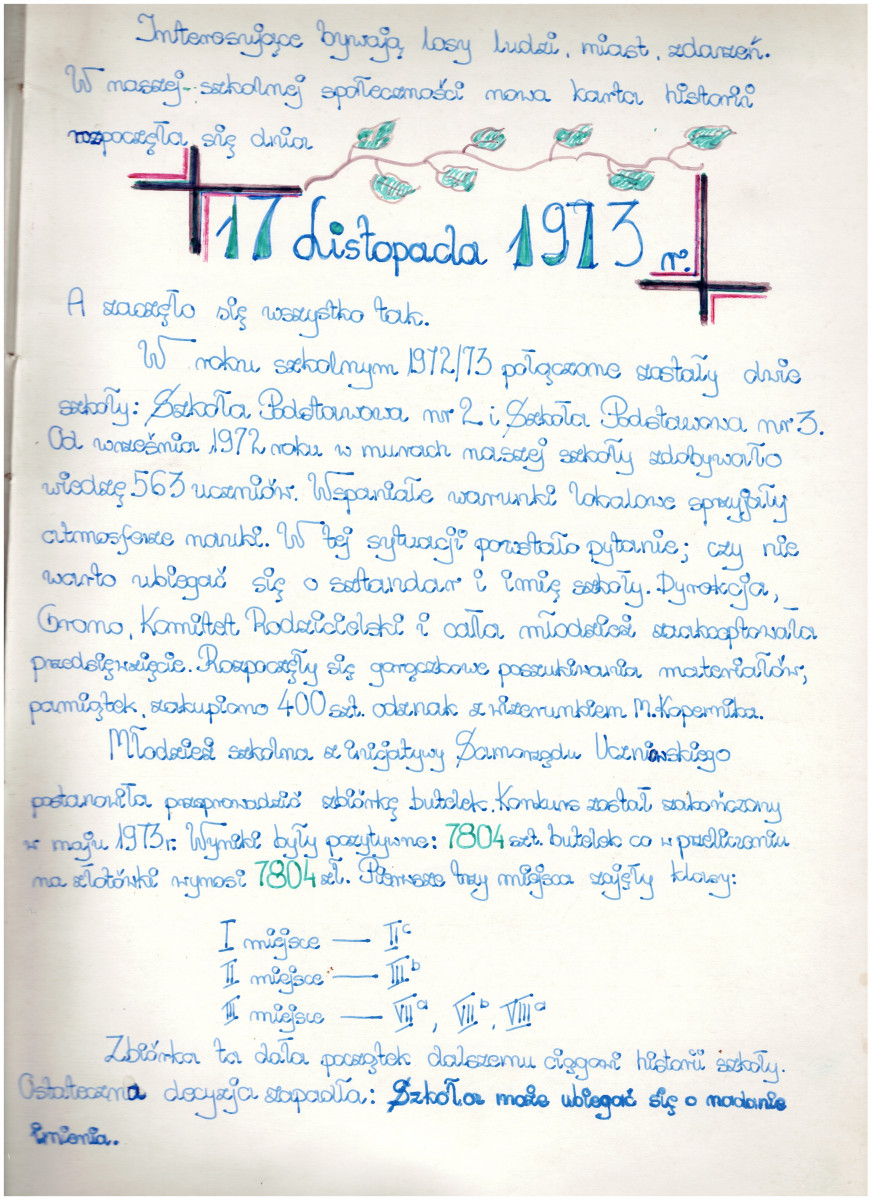 Interesujące bywają losy ludzi, miast, zdarzeń.
W naszej szkolnej społeczności nowa karta historii
rozpoczęła się dnia
17 Listopada 1973 r.
A zaczęło się wszystko tak.
W roku szkolnym 1972/73 połączone zostały dwie
szkoły: Szkoła Podstawowa nr 2 i Szkoła Podstawowa nr 3.
Od września 1972 roku w murach naszej szkoły zdobywało
wiedzę 563 uczniów. Wspaniałe warunki lokalowe sprzyjały
atmosferze nauki. W tej sytuacji powstało pytanie; czy nie
warto ubiegać się o sztandar i imię szkoły. Dyrekcja,
Grono, Komitet Rodzicielski i cała młodzież zaakceptowała
przedsięwzięcie. Rozpoczęły się gorączkowe poszukiwania materiałów,
pamiątek, zakupiono 400 szt. odznak z wizerunkiem M. Kopernika.
Młodzież szkolna z inicjatywy Samorządu Uczniowskiego
postanowiła przeprowadzić zbiórkę butelek. Konkurs został zakończony
w maju 1973 r. Wyniki były pozytywne: 7804 szt. butelek co w przeliczeniu
na złotówki wynosi 7804 zł. Pierwsze trzy miejsca zajęły klasy:
I miejsce — II c
II miejsce — III b
III miejsce — VII a, VII b, VIII a
Zbiórka ta dała początek dalszemu ciągowi historii szkoły.
Ostateczna decyzja zapadła: Szkoła może ubiegać się o nadanie
imienia.